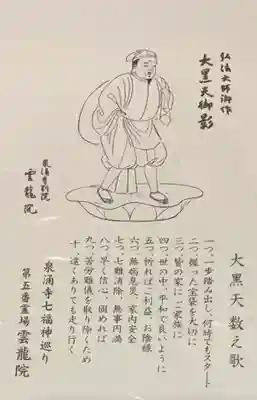 弘法大師御作
大黒天御影
泉涌寺別院
雲龍院
大黒天数え歌
一つ、一歩踏み出し、何時でもスタート
二つ、握った宝袋を大切に
三つ、皆の家にご家族に
四つ、世の中、平和で良いように
五つ、祈ればご利益、お陰様
六つ、無病息災、家内安全
七つ、七難消除、無事円満
八つ、早く信心、固めれば
九つ、苦労難儀を取り除くため
十、遠くありても走り行く
泉涌寺七福神巡り
第五番霊場 雲龍院